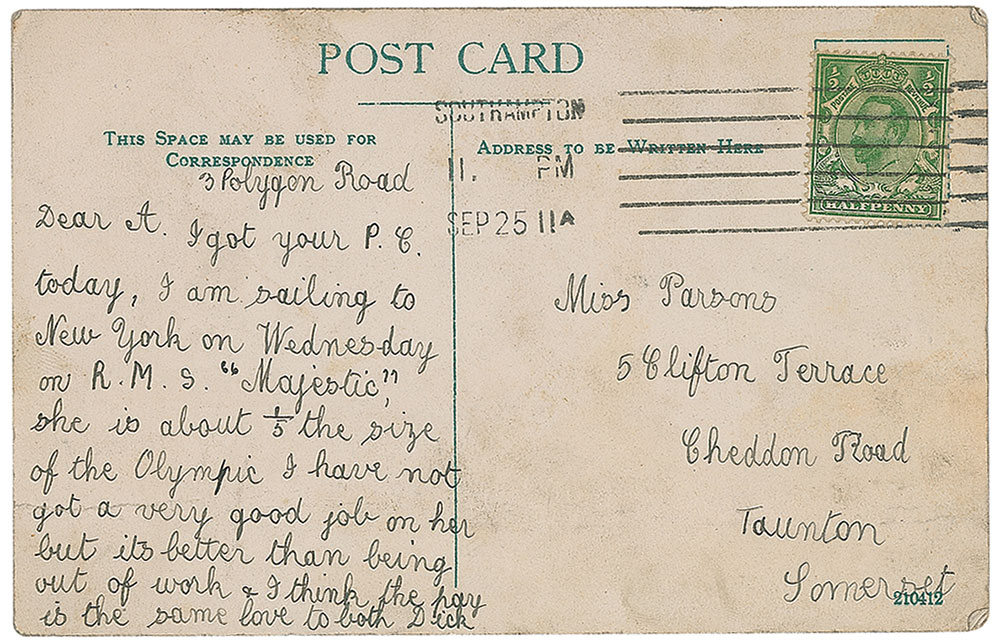 POST CARD
THIS SPACE MAY BE USED FOR
CORRESPONDENCE
3 Polygon Road
Dear A. I got your P.C.
today, I am sailing to
New York on Wednesday
on R.M.S. "Majestic",
she is about 1/5 the size
of the Olympic I have not
got a very good job on her
but its better than being
out of work & I think the pay
is the same love to both Dick
SOUTHAMPTON
11. PM
SEP 25 11A
ADDRESS TO BE WRITTEN HERE
½ ½
POSTAGE REVENUE
HALFPENNY
Miss Parsons
5 Clifton Terrace
Cheddon Road
Taunton
Somerset
210412